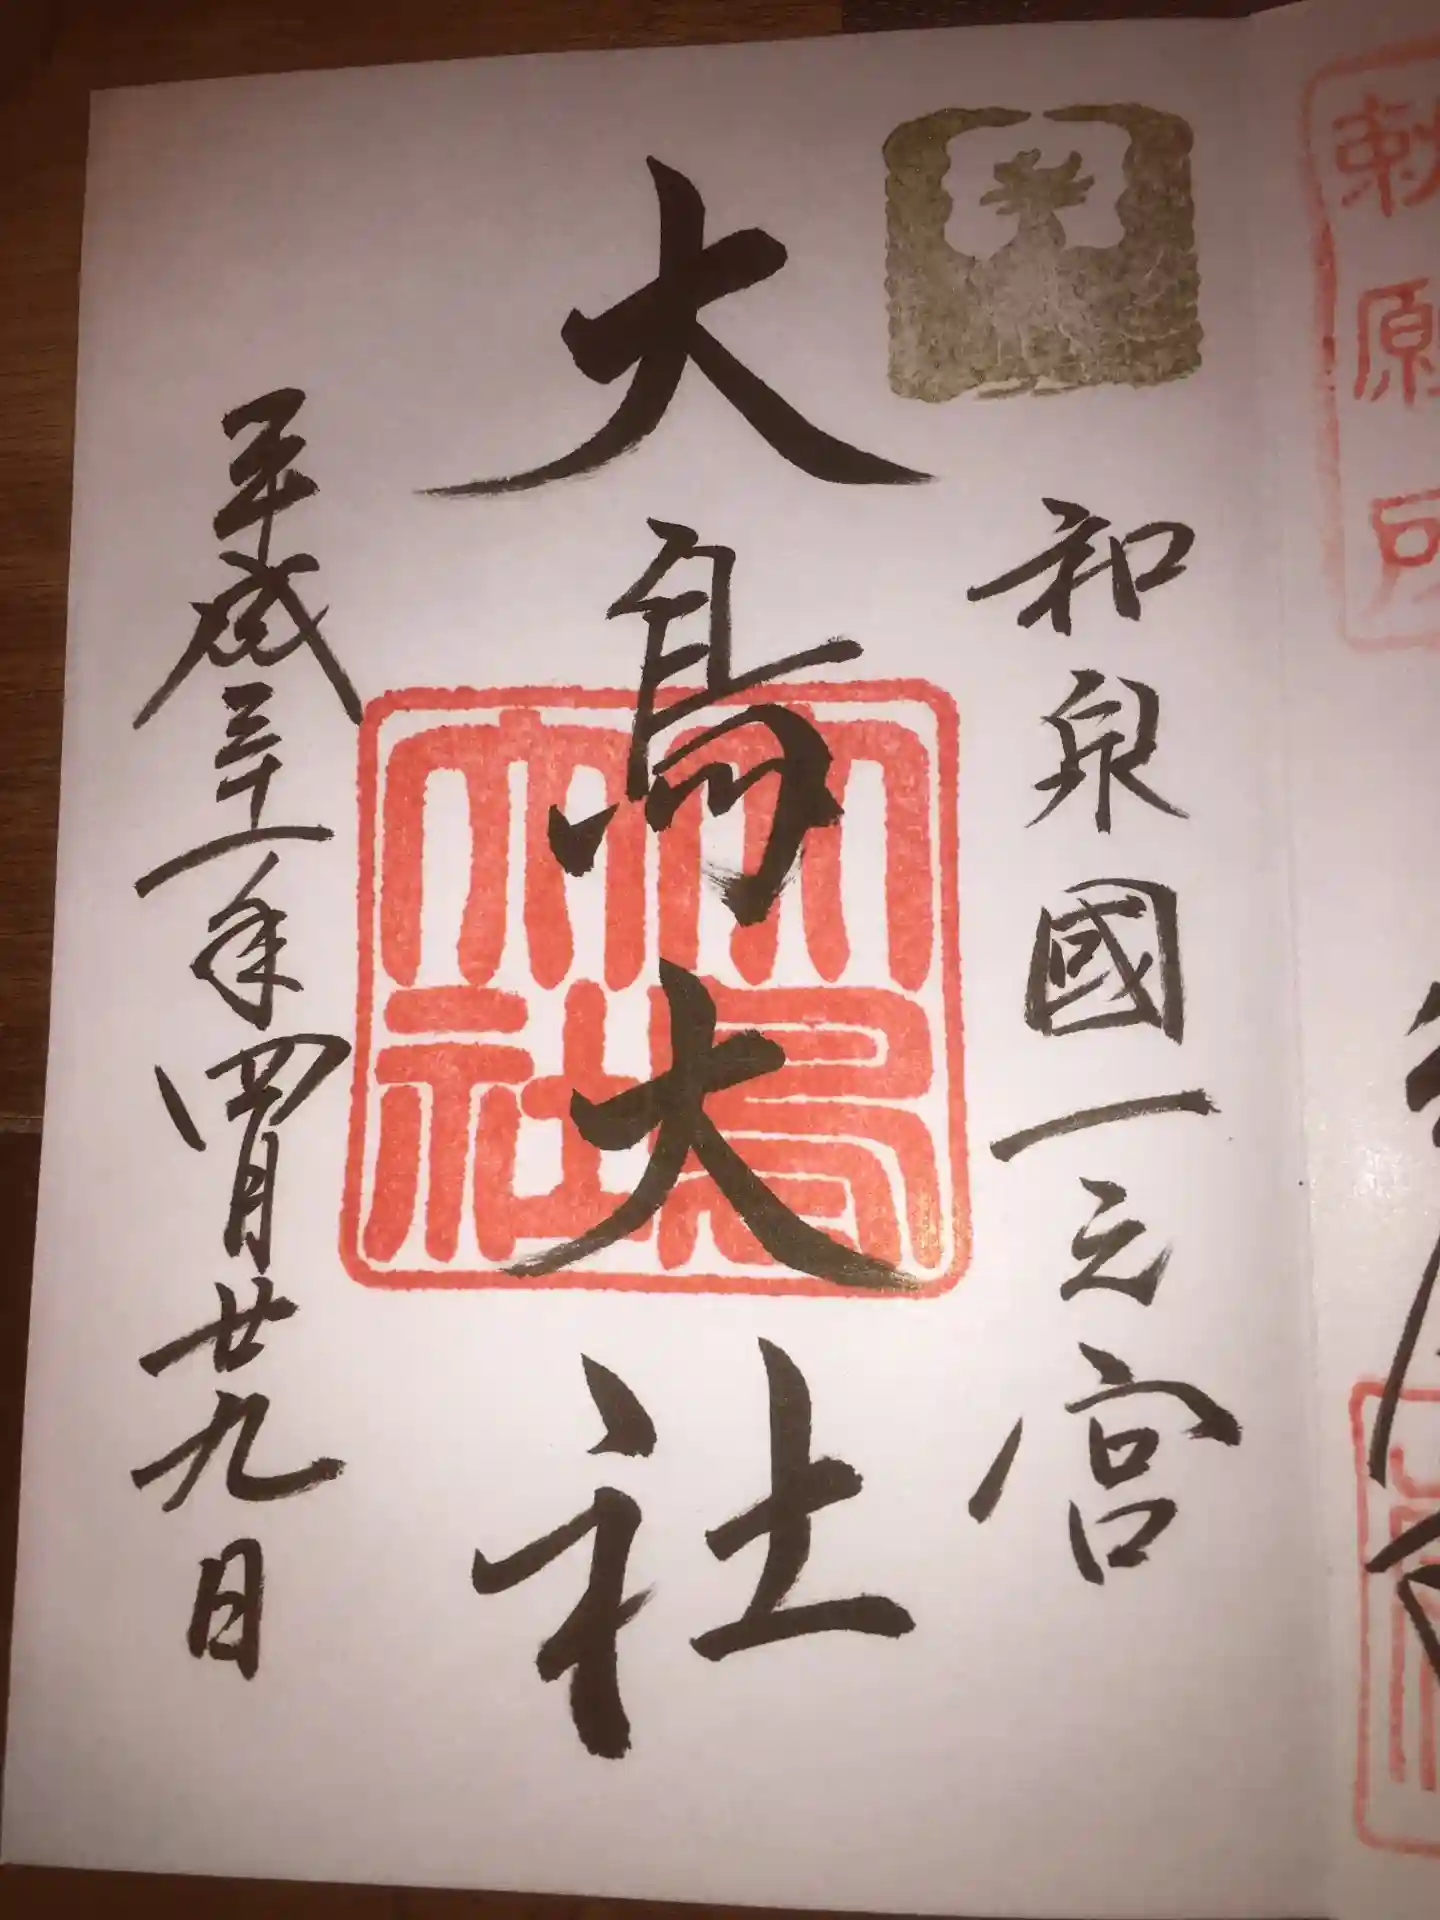 勅願
和泉國一之宮
大鳥大社
大鳥
大社
平成三十一年四月廿九日